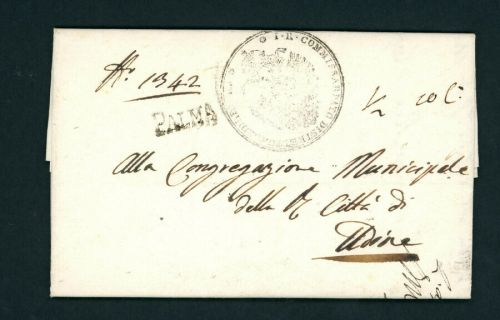 N.° 1342
I. R. COMMISSARIATO DISTRETTUALE
PALMA
Alla Congregazione Municipale
della R. Città di
Udine